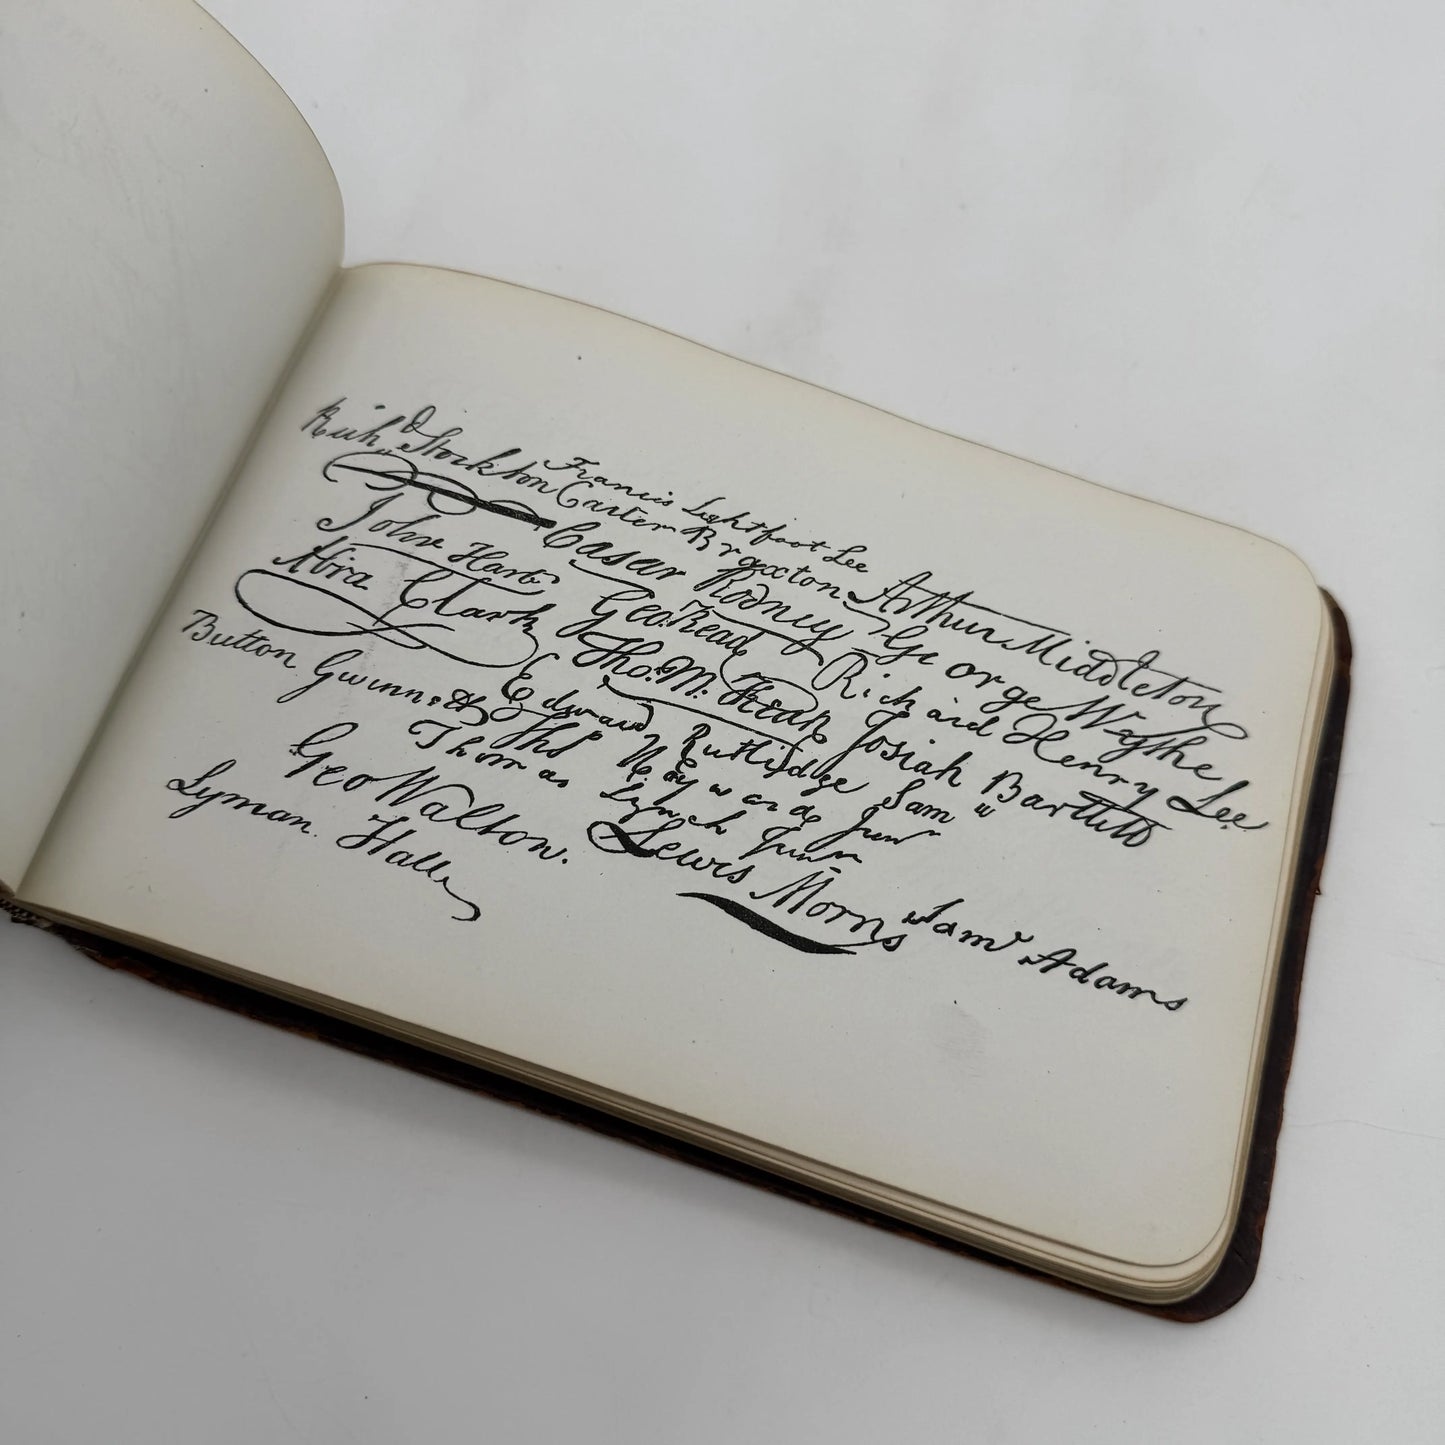 Rich.d Stockton
Francis Lightfoot Lee
Carter Braxton
Arthur Middleton
John Hart
Casar Rodney
George Wythe
Abra Clark
Geo. Read
Richard Henry Lee
Button Gwinnett
Tho. M. Kean
Josiah Bartlett
Edward Rutlidge
Sam
Tho.s Heyward Jun.r
Thomas Lynch Junr
Geo Walton.
Lewis Morris
Lyman Hall
Sam.l Adams